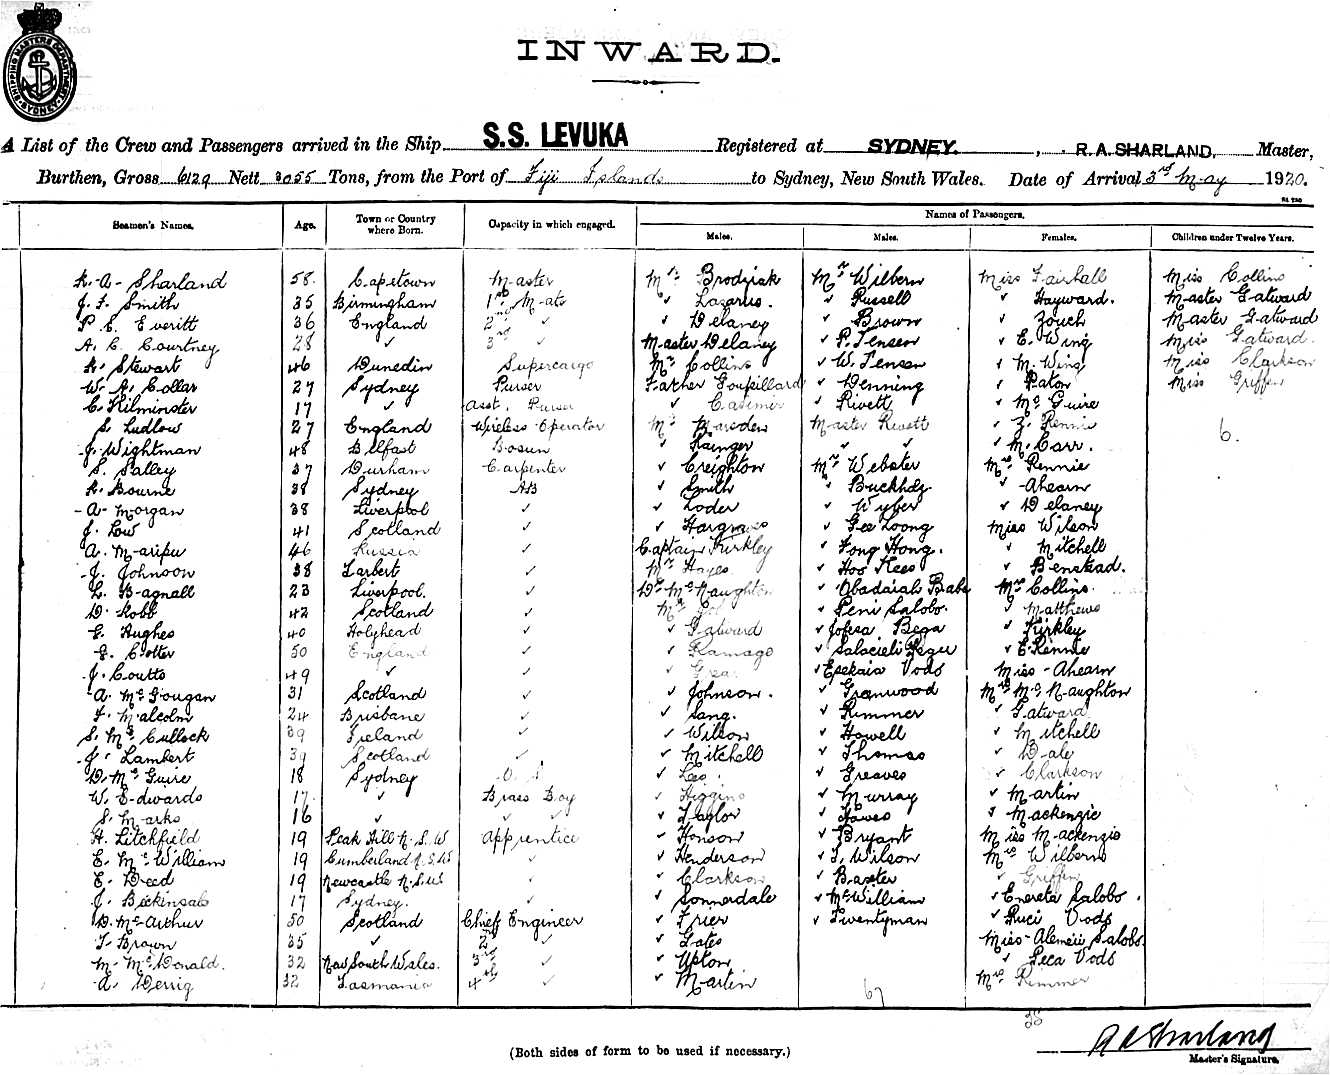 SHIPPING MASTERS DEPARTMENT
SYDNEY
INWARD.
A List of the Crew and Passengers arrived in the Ship S.S. LEVUKA Registered at SYDNEY. , R.A. SHARLAND, Master,
Burthen, Gross 6129 Nett 3055 Tons, from the Port of Fiji Islands to Sydney, New South Wales. Date of Arrival 3rd May 1920.
Seamen's Names. Age. Town or Country where Born. Capacity in which engaged. Names of Passengers.
Males. Males. Females. Children under Twelve Years.
R. A. Sharland 58. Capetown Master Mr. Brodziak Mr Wilbern Miss Fairhall Miss Collins
J. F. Smith 35 Birmingham 1st Mate " Lazarus. " Russell " Hayward. Master Gatward
P. C. Everitt 36 England 2nd " " Delaney " Brown " Zouch Master Gatward
A. C. Courtney 28 " 3rd " Master Delaney " P. Jensen " E. Wing Miss Gatward.
R. Stewart 46 Dunedin Supercargo Mr Collins " W. Jensen " M. Wing Miss Clarkson
W. A. Collar 27 Sydney Purser Father Goupillard " Denning " Paton Miss Griffin
C. Kilminster 17 " Asst. Purser " Casimir " Rivett " McGuire
S. Ludlow 27 England Wireless Operator Mr Marsden Master Rivett " Z. Rennie 6.
J. Wightman 48 Belfast Bosun " Rainger " " " M. Carr.
S. Salley 37 Durham Carpenter " Creighton Mr Webster Mrs Rennie
R. Bourne 38 Sydney AB " Smith " Buckhdz. " Ahearn
A. Morgan 38 Liverpool " " Loder " Wyber " Delaney
J. Low 41 Scotland " " Hargraves " Gee Loong Miss Wilson
A. Maripu 46 Russia " Captain Kirkley " Fong Hong. " Mitchell
J. Johnson 38 Tarbert " Mr Hayes " Hoo Kees " Benskad.
L. Bagnall 23 Liverpool. " Dr McNaughton " Obadaiah Baba Mrs Collins.
D. Robb 42 Scotland " Mr " Peni Salobo. " Matthews
G. Hughes 40 Holyhead " " Gatward " Jofesa Bega " Kirkley
G. Cotter 50 England " " Ramage " Salacieli Segu " E. Rennie
J. Coutts 49 " " " " Esekaia Vods Miss Ahearn
A. McGougan 31 Scotland " " Johnson. " Granwood Mrs McNaughton
F. Malcolm 24 Brisbane " " Lang. " Rimmer " Gatward
S. McCullock 39 Ireland " " Wilson " Howell " Mitchell
J. Lambert 39 Scotland " " Mitchell " Thomas " Daly
D. McGuire 18 Sydney O.S. " Lees. " Greaves " Clarkson
W. Edwards 17. " Brass Boy " Higgins " Murray " Martin
S. Marks 16 " " " " Taylor " Hawes " Mackenzie
H. Litchfield 19 Peak Hill N.S.W Apprentice " Honson " Bryant Miss Mackenzie
E. McWilliam 19 Cumberland N.S.W " " Henderson " T. Wilson Mrs Wilbern
E. Deed 19 Newcastle N.S.W " " Clarkson " Baxter " Griffin
J. Bickinsale 17 Sydney. " " Sonnerdale " McWilliam " Enereta Salobo.
D. McArthur 50 Scotland Chief Engineer " Frier " Twentyman " Luci Vods
T. Brown 35 " 2nd " " Gates Miss Alemeii Salobo.
M. McDonald. 32 New South Wales. 3rd " " Upton " Peca Vods
A. Derrig 32 Tasmania 4th " " Martin Mrs Rimmer
67
38
R A Sharland
Master's Signature.
(Both sides of form to be used if necessary.)